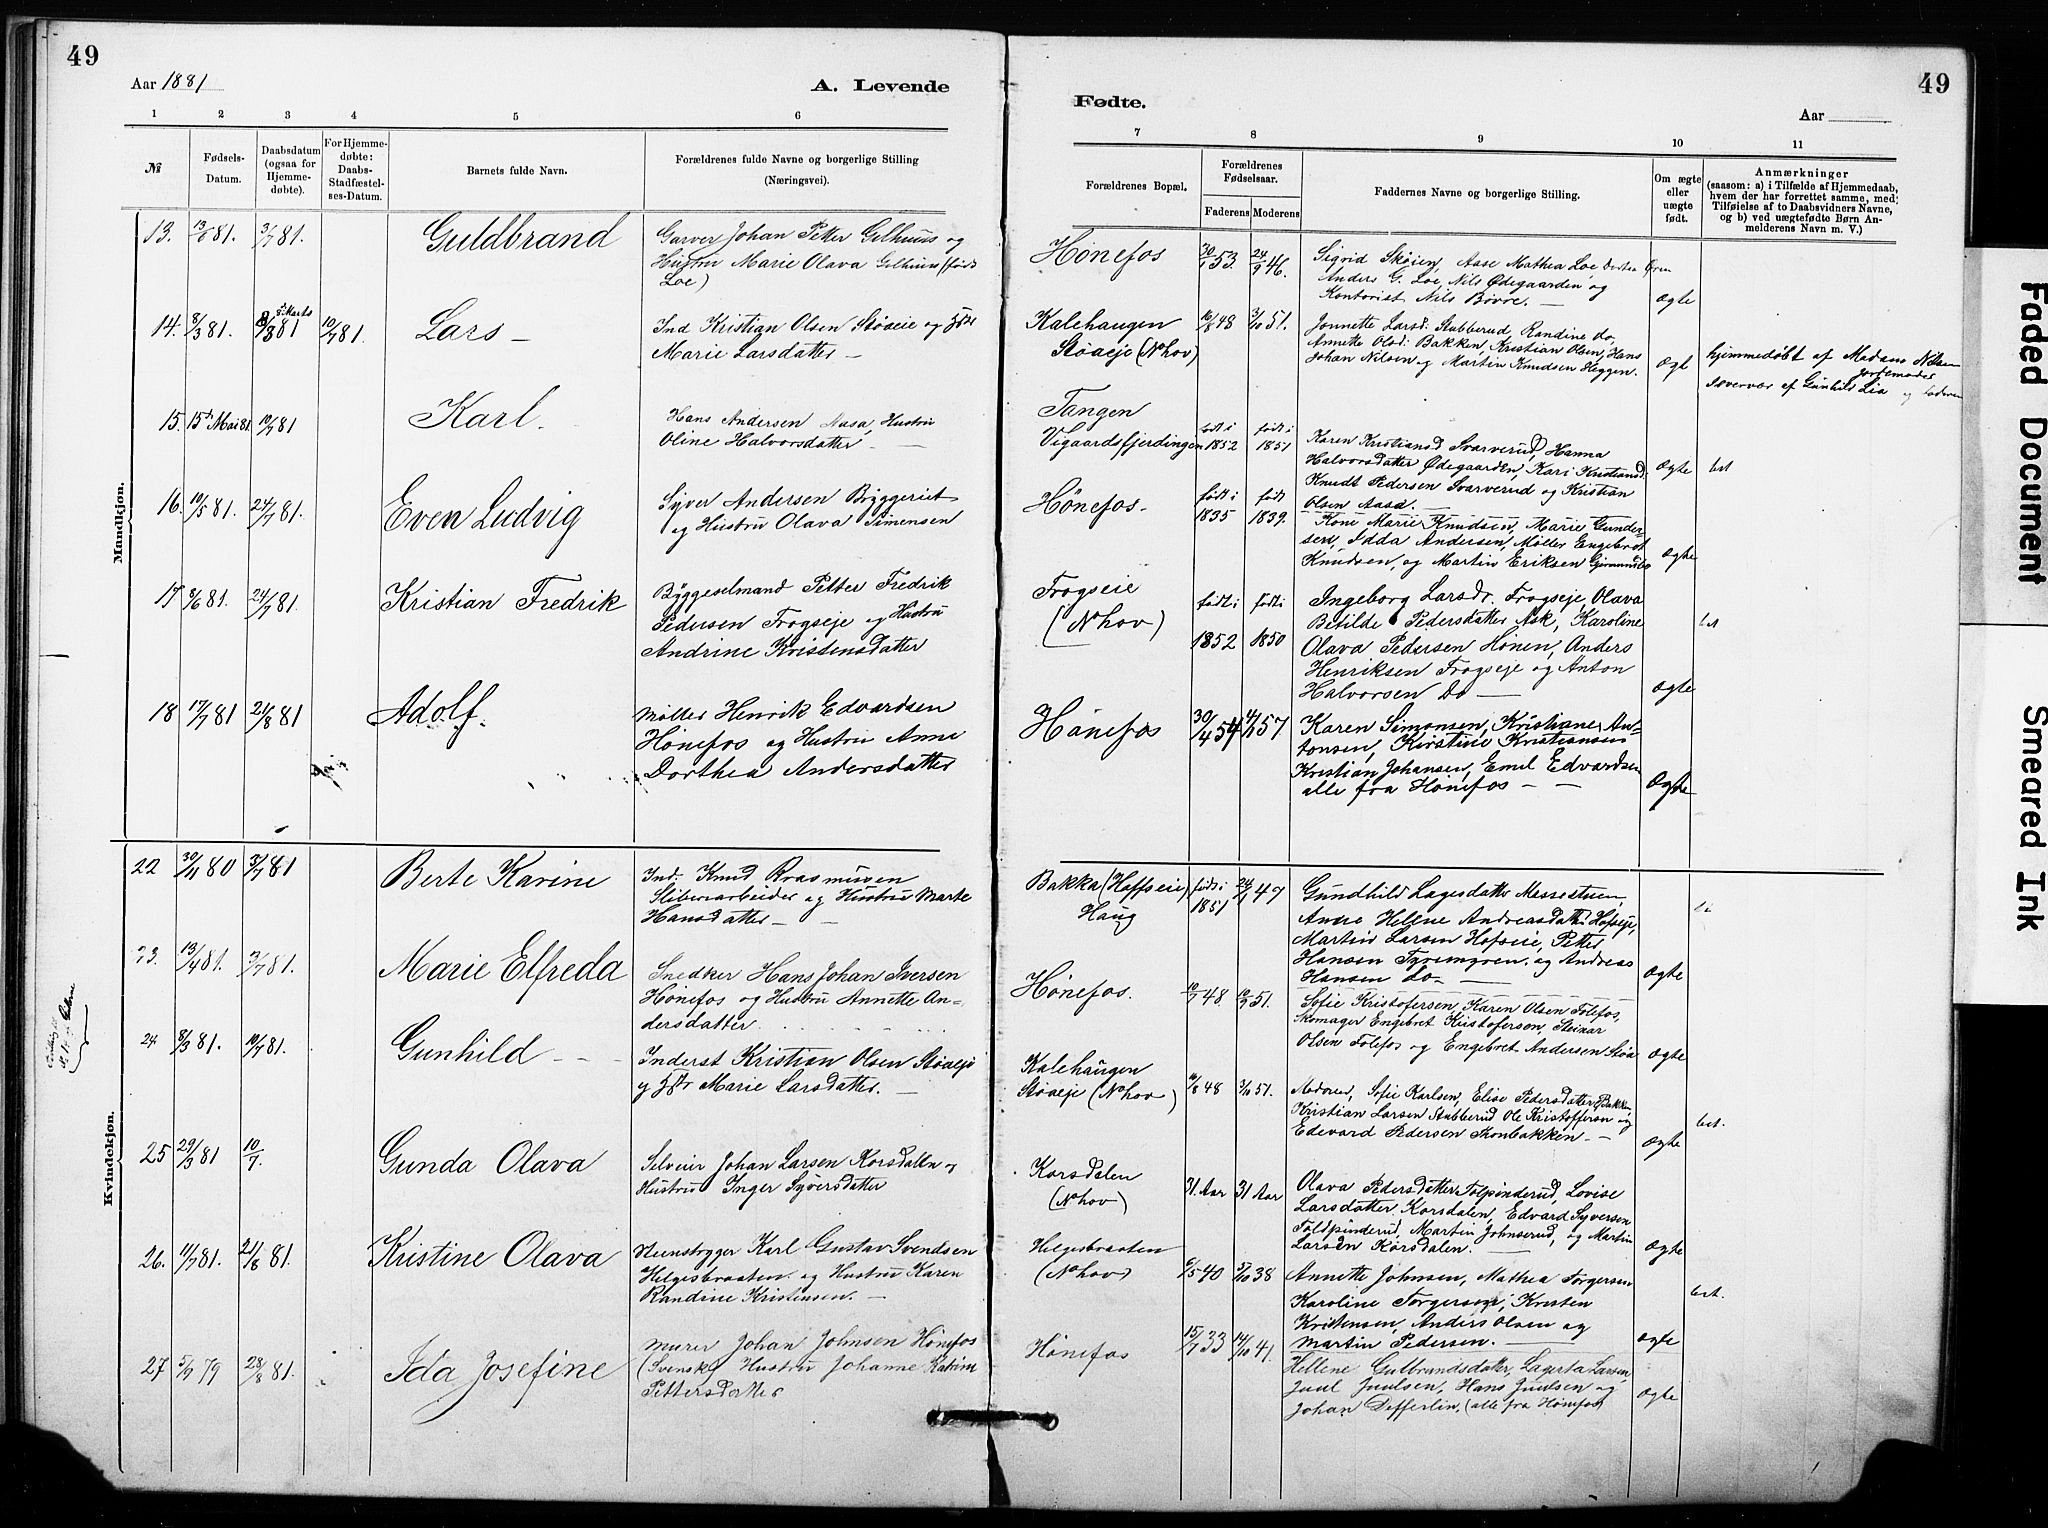 49
Aar 1881
A. Levende
1 2 3 4 5 6
№
Fødsels-Datum.
Daabsdatum (ogsaa for Hjemme-døbte).
For Hjemme-døbte: Daabs-Stadfæstel-ses-Datum.
Barnets fulde Navn.
Forældrenes fulde Navne og borgerlige Stilling
(Næringsvei).
Mandkjøn.
13. 13/6 81. 3/7 81. Guldbrand
Garver Johan Petter Gilhuus og
Hustru Marie Olava Gilhuus (født
Loe)
14. 8/3 81. 8/3 81 10/7 81. Lars —
Ind Kristian Olsen Støaeie og
Marie Larsdatter —
15. 15de Mai 81. 10/7 81 Karl.
Hans Andersen Aasa, Hustru
Oline Halvorsdatter —
16. 10/5 81. 24/7 81. Even Ludvig
Syver Andersen Bryggeriet
og Hustru Olava Simensen
17 8/6 81. 24/7 81. Kristian Fredrik
Byggeselmand Petter Fredrik
Pedersen Frogseje og Hustru
Andrine Kristensdatter
18 17/7 81 21/8 81 Adolf.
Møller Henrik Edvardsen
Hönefos og Hustru Anne
Dorthea Andersdatter
Kvindekjøn.
22 30/11 80 3/7 81 Berte Karine
Ind. Knud Rrasmusen
Sliberiarbeider og Hustru Marte
Hansdatter —
23. 13/4 81. 3/7 81. Marie Elfreda
Snedker Hans Johan Iversen
Hönefos og Hustru Annette An-
dersdatter.
24. 8/3 81. 10/7 81. Gunhild
Inderst Kristian Olsen Støaeje
og Marie Larsdatter. —
25 29/3 81 10/7. Gunda Olava
Selveier Johan Larsen Korsdalen og
Hustru Inger Syversdatter
26. 11/7 81. 21/8 81. Kristine Olava
Karl Gustav Svendsen
Helgesbraaten og Hustru Karen
Randine Kristensen. —
27 5/9 79 28/8 81. Ida Josefine
Murer Johan Johnsen Hönefos
(Svensk) Hustru Johanne Katrine
Pettersdatter
49
Fødte.
Aar
7 8 9 10 11
Forældrenes Bopæl.
Forældrenes Fødselsaar.
Faderens Moderens
Faddernes Navne og borgerlige Stilling.
Om ægte eller uægte født.
Anmærkninger
(saasom: a) i Tilfælde af Hjemmedaab,
hvem der har forrettet samme, med
Tilføielse af to Daabsvidners Navne,
og b) ved uægtefødte Børn An-
melderens Navn m. V.)
Hönefos 30/1 53. 24/9 46.
Sigrid Skøien, Aase Mathea Loe Dortea Øren
Anders G. Loe, Nils Ødegaarden og
Kontorist Nils Bövre. —
Ægte
Kalehaugen
Støaeje (Nhov)
16/8 48 3/10 51.
Jonnette Larsd. Stubberud Randine Do,
Annette Olsd. Bakken, Kristian Olsen, Hans
Johan Nilsen og Martin Knudsen Heggen.
Ægte
hjemmedøbt af Madam Nilsen
Jordemoder
i overvær af Gunhild Lia og faderen
Tangen
Vigaardsfjerdingen
født i 1852 født i 1851
Karen Kristiansd Svarverud, Hanna
Halvorsdatter Ødegaarden, Kari Kristiansd.
Knudt Pedersen Svarverud og Kristian
Olsen Aasa. —
Ægte
Hönefos.
født i 1835 født 1839.
Kone Marie Knudsen, Marie Gunder-
sen, Idda Andersen, Møller Engebret
Knudsen, og Martin Eriksen
Ægte
Frogseie
(Nhov)
født i 1852 født i 1850
Ingeborg Larsdr. Frogseje, Olava
Betilde Pedersdatter Ask, Karoline
Olava Pedersen Hönen, Anders
Henriksen Frogseje og Anton
Halvorsen Do —
Ægte
Hönefos 30/4 54 4/1 57
Karen Simonsen, Kristiane An-
tonsen, Kirstine Kristiansen
Kristian Johansen, Emil Edvardsen
alle fra Hönefos —
Ægte
Bakka (Hoffseie)
Haug
født i 1851 24/1 47
Gundhild Lagesdatter Messestuen,
Anne Hellene Andreasdatter Hofseje,
Martin Larsen Hofseie, Petter
Hansen og Andreas
Hansen do —
Ægte
Hönefos. 10/7 48. 10/9 51.
Sofie Kristofersen, Karen Olsen Folefos,
Skomager Engebret Kristofersen, Steinar
Olsen Folefos og Engebret Andersen Støa
Ægte
Kalehaugen
Støaeje (Nhov)
16/8 48 3/10 51.
Sofie Karlsen, Elise Pedersdatter Bakken,
Kristian Larsen Stubberud Ole Kristoffersen og
Edevard Pedersen Skonbakken —
Ægte
Korsdalen
(Nhov)
31 Aar 31 Aar
Olava Pedersdatter Tolpinderud, Lovise
Larsdatter Korsdalen, Edvard Syversen
Toldpinderud, Martin Johnserud, og Martin
Larsen Korsdalen. —
Ægte
Helgesbraaten
(Nhov)
6/5 40 5/10 38
Annette Johnsen, Mathea Torgersen
Karoline Torgersen, Kristen
Kristensen, Anders Olsen og
Martin Pedersen. —
Ægte
Hönefos 15/7 33 14/10 41.
Hellene Gulbrandsdatter, Lagerta Larsen,
Juul Juulsen, Hans Juulsen og
Johan Defferlin, (alle fra Hönefos)
Ægte
Faded Document
Smeared Ink